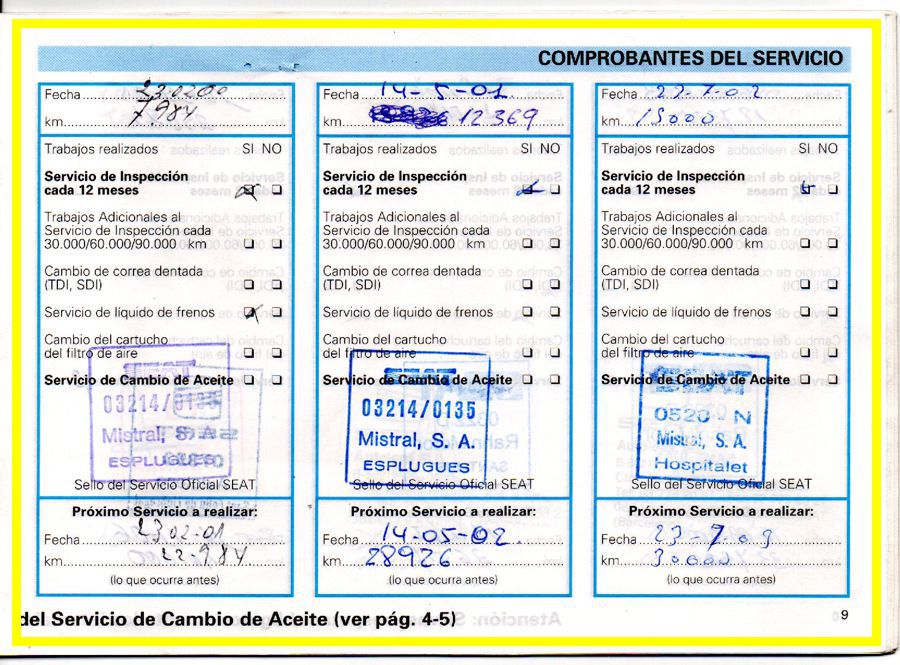 COMPROBANTES DEL SERVICIO
Fecha 23.02.00
km. 7.984
Trabajos realizados SI NO
Servicio de Inspección
cada 12 meses
Trabajos Adicionales al
Servicio de Inspección cada
30.000/60.000/90.000 km
Cambio de correa dentada
(TDI, SDI)
Servicio de líquido de frenos
Cambio del cartucho
del filtro de aire
Servicio de Cambio de Aceite
SEAT
03214/0135
Mistral, S. A.
ESPLUGUES
Sello del Servicio Oficial SEAT
Próximo Servicio a realizar:
Fecha 23.02.01
km. 22.984
(lo que ocurra antes)
Fecha 14-5-01
km. 12369
Trabajos realizados SI NO
Servicio de Inspección
cada 12 meses
Trabajos Adicionales al
Servicio de Inspección cada
30.000/60.000/90.000 km
Cambio de correa dentada
(TDI, SDI)
Servicio de líquido de frenos
Cambio del cartucho
del filtro de aire
Servicio de Cambio de Aceite
03214/0135
Mistral, S. A.
ESPLUGUES
Sello del Servicio Oficial SEAT
Próximo Servicio a realizar:
Fecha 14-05-02.
km. 28926
(lo que ocurra antes)
Fecha 23-7-02
km. 15000
Trabajos realizados SI NO
Servicio de Inspección
cada 12 meses
Trabajos Adicionales al
Servicio de Inspección cada
30.000/60.000/90.000 km
Cambio de correa dentada
(TDI, SDI)
Servicio de líquido de frenos
Cambio del cartucho
del filtro de aire
Servicio de Cambio de Aceite
SEAT
0520 - N
Mistral, S. A.
Hospitalet
Sello del Servicio Oficial SEAT
Próximo Servicio a realizar:
Fecha 23-7-03
km. 30000
(lo que ocurra antes)
del Servicio de Cambio de Aceite (ver pág. 4-5)
9